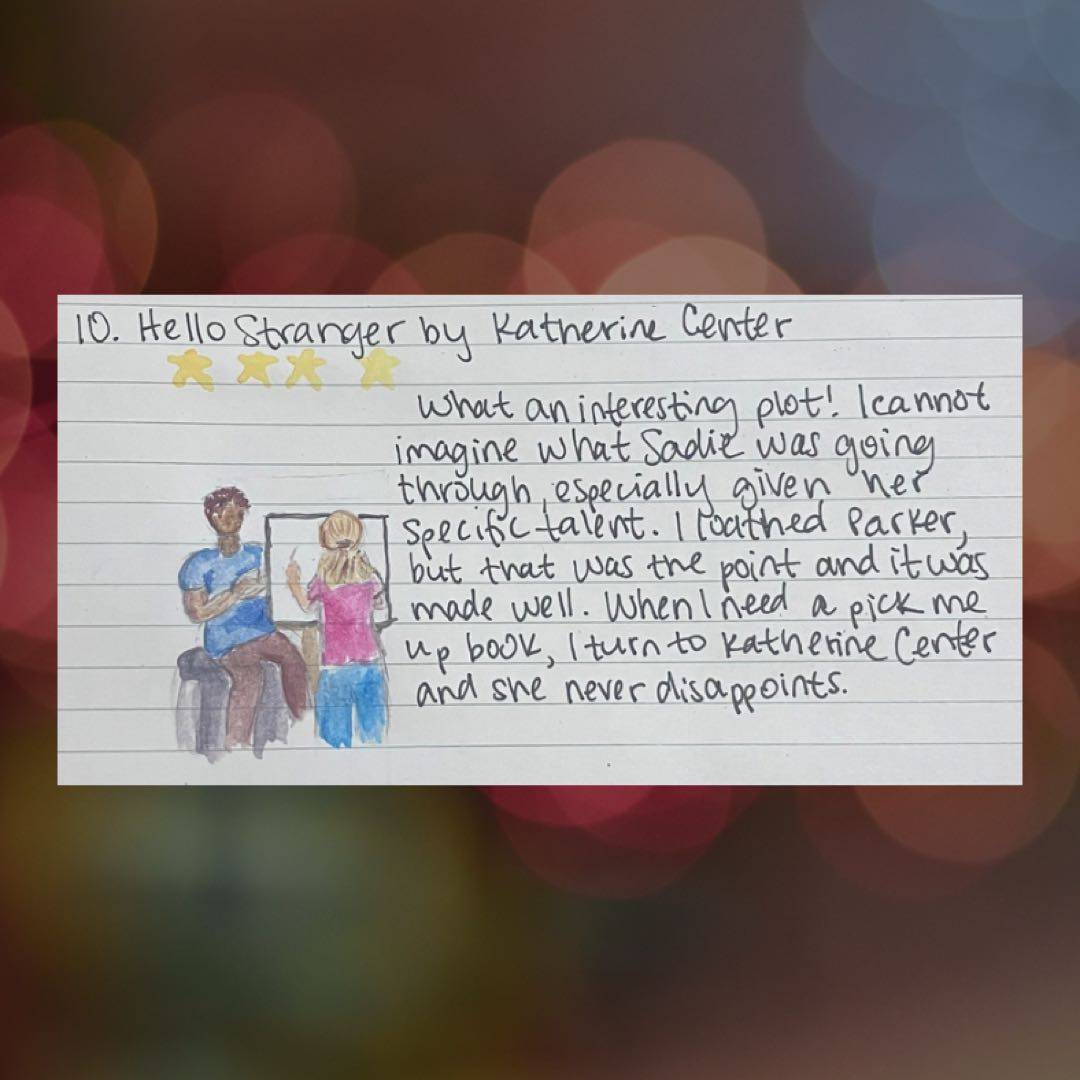 10. Hello Stranger by Katherine Center
What an interesting plot! I cannot
imagine what Sadie was going
through, especially given her
specific talent. I loathed Parker,
but that was the point and it was
made well. When I need a pick me
up book, I turn to Katherine Center
and she never disappoints.